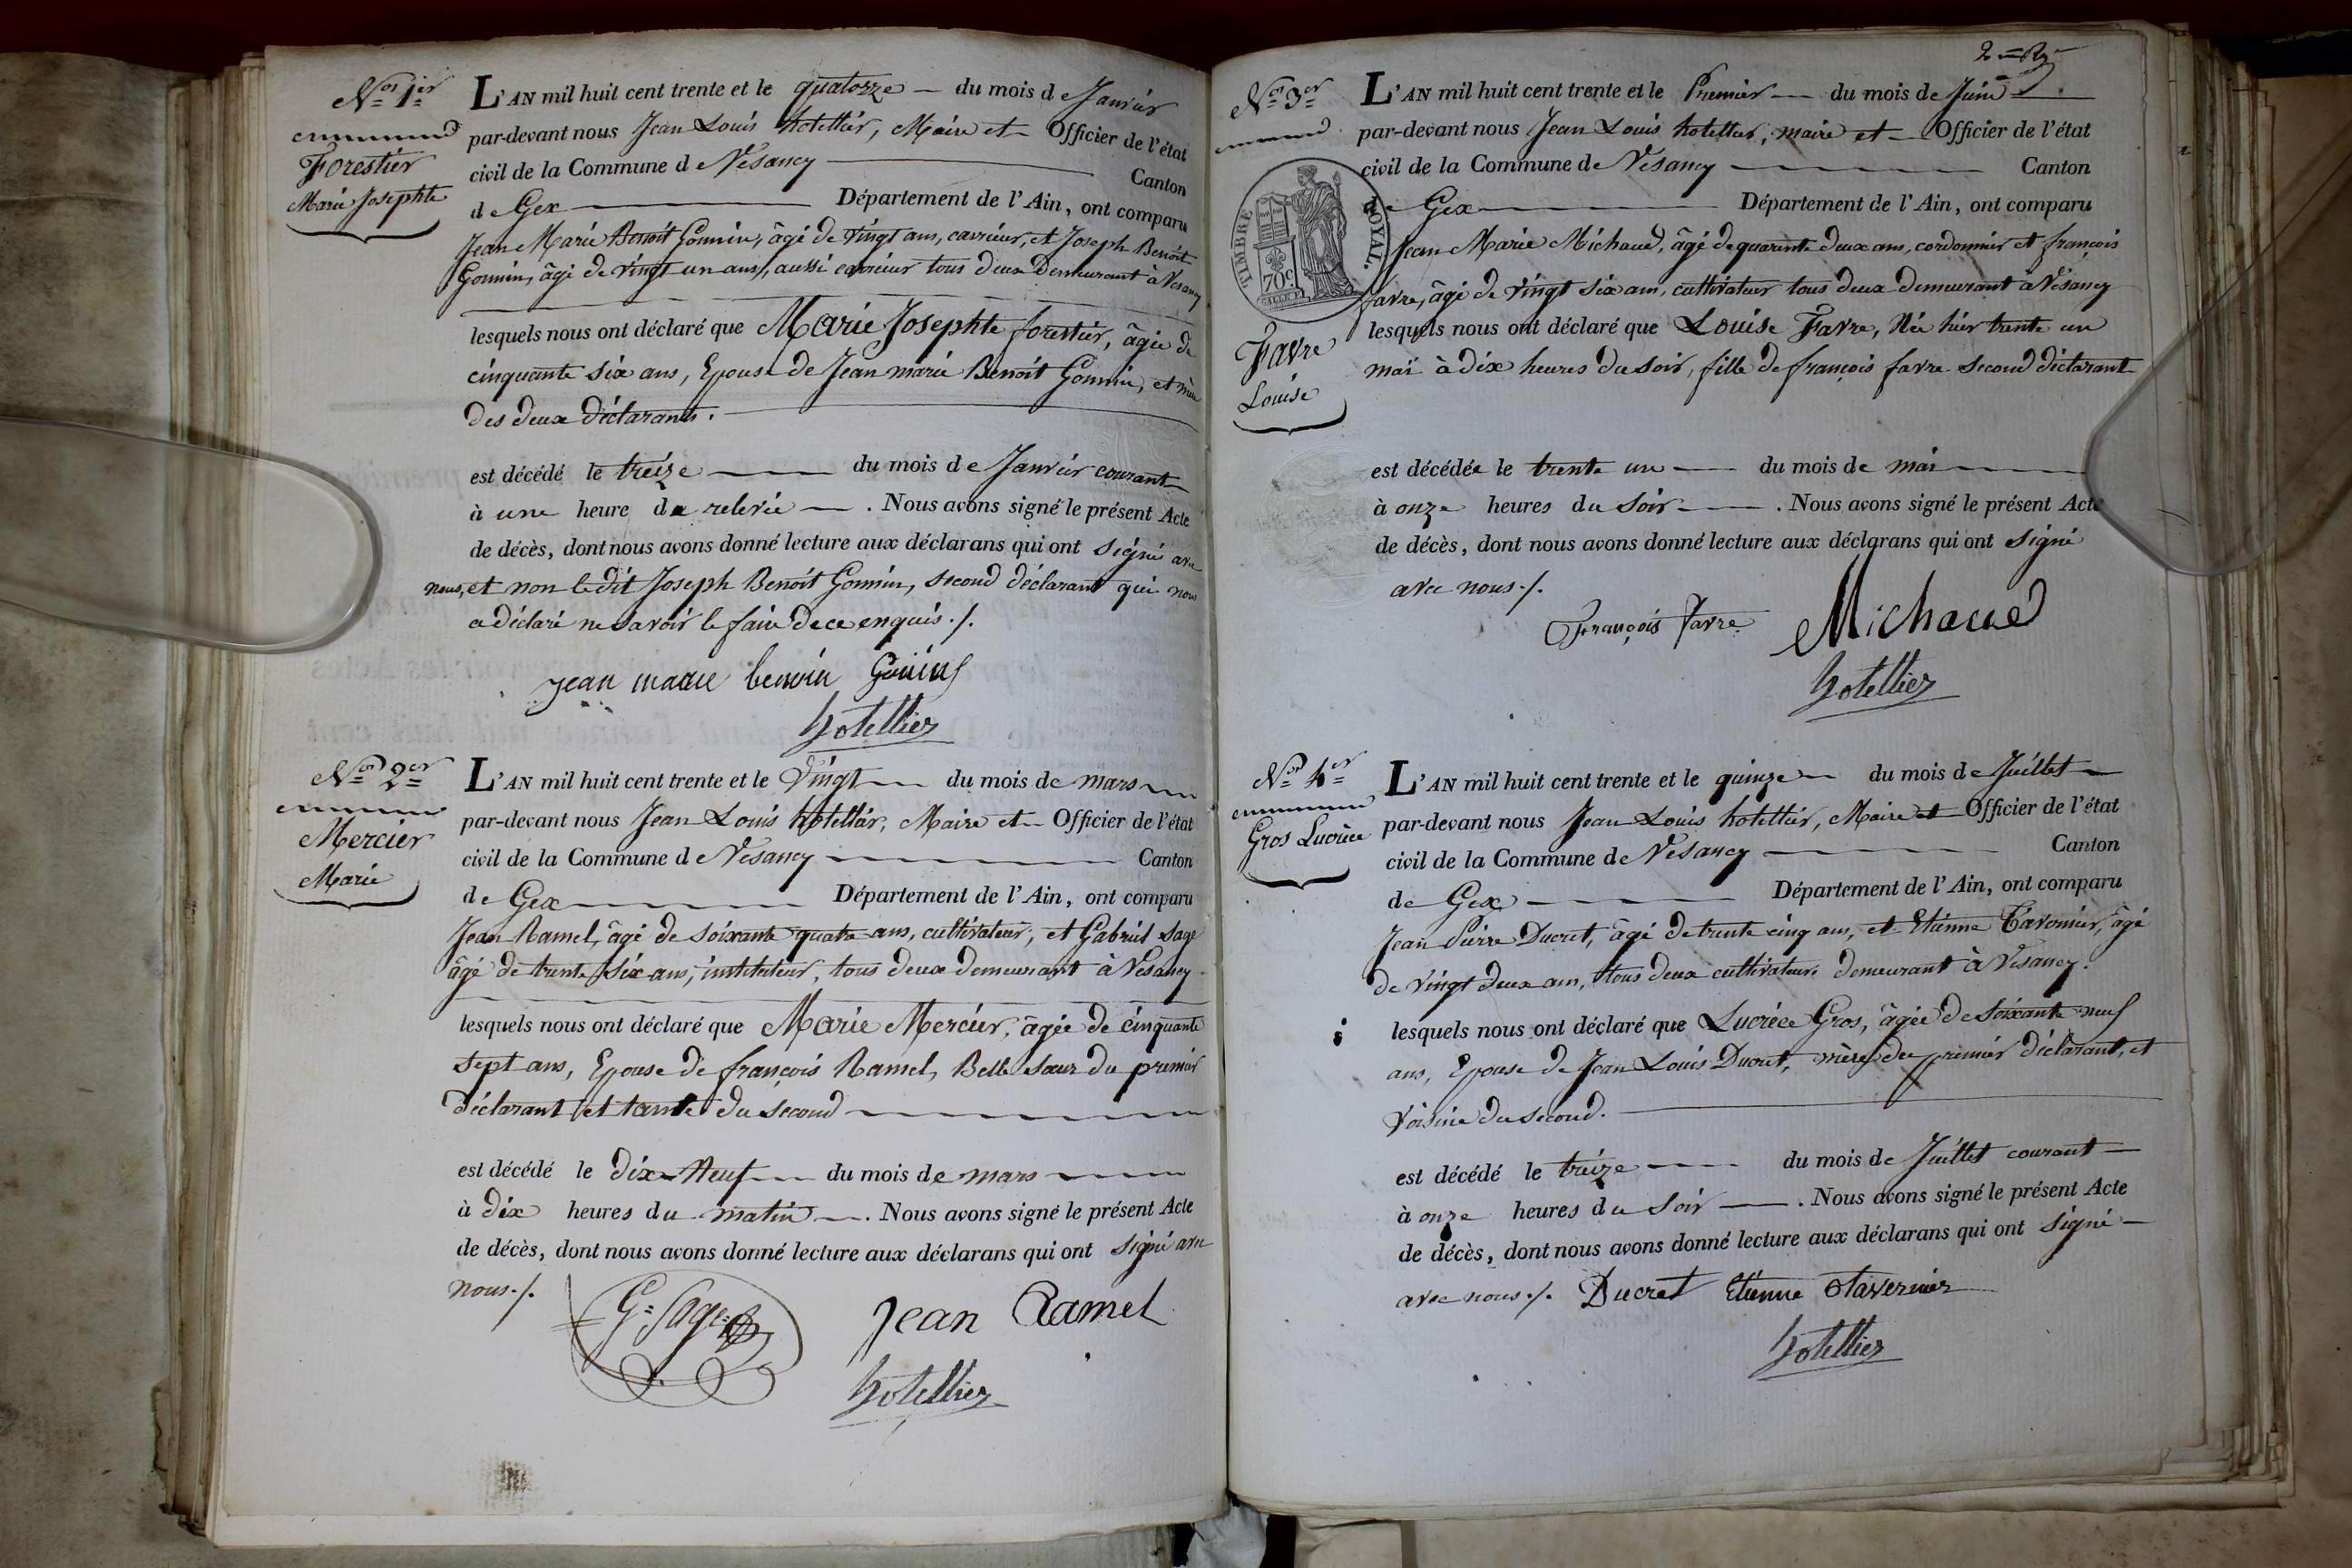 N.os 1.er
Forestier
Marie Josephte
L'AN mil huit cent trente et le quatorze du mois de Janvier
par-devant nous Jean Louis hotellier, Maire et Officier de l'état
civil de la Commune de Vesancy Canton
de Gex Département de l'Ain, ont comparu
Jean Marie Benoit Gonnin, âgé de vingt ans, carrieur, et Joseph Benoit
Gonnin, âgé de vingt un ans, aussi carrieur tous deux Demeurant à Vesancy
lesquels nous ont déclaré que Marie Josephte forestier, âgée de
cinquante six ans, Epouse de Jean marie Benoit Gonnin, et mère
des deux déclarants.
est décédé le treize du mois de Janvier courant
à une heure de relevée. Nous avons signé le présent Acte
de décès, dont nous avons donné lecture aux déclarans qui ont signé avec
nous, et non le dit Joseph Benoit Gonnin, second déclarant qui nous
a déclaré ne savoir le faire de ce enquis ./.
jean marie benoin
hotellier
N.os 2.er
Mercier
Marie
L'AN mil huit cent trente et le Vingt du mois de mars
par-devant nous Jean Louis hotellier, Maire et Officier de l'état
civil de la Commune de Vesancy Canton
de Gex Département de l'Ain, ont comparu
Jean Ramel, âgé de soixante quatre ans, cultivateur, et Gabriel Sage
âgé de trente six ans, instituteur, tous deux demeurant à Vesancy
lesquels nous ont déclaré que Marie Mercier, âgée de cinquante
sept ans, Epouse de françois Ramel, Belle sœur du premier
déclarant et tante du second
est décédé le dix-Neuf du mois de mars
à dix heures du matin. Nous avons signé le présent Acte
de décès, dont nous avons donné lecture aux déclarans qui ont signé avec
nous ./.
G. Sage Jean Ramel
hotellier
N.os 3.er
TIMBRE ROYAL.
70.c
Favre
Louise
L'AN mil huit cent trente et le Premier du mois de Juin
par-devant nous Jean Louis hotellier, maire et Officier de l'état
civil de la Commune de Vesancy Canton
de Gex Département de l'Ain, ont comparu
Jean Marie Michaud, âgé de quarante deux ans, cordonnier et françois
favre, âgé de vingt six ans, cultivateur tous deux demeurant à Vesancy
lesquels nous ont déclaré que Louise Favre, Née hier trente un
mai à dix heures du soir, fille de françois favre second déclarant
est décédée le trente un du mois de mai
à onze heures du soir. Nous avons signé le présent Acte
de décès, dont nous avons donné lecture aux déclarans qui ont signé
avec nous ./.
François favre Michaud
hotellier
N.os 4.er
Gros Lucrèce
L'AN mil huit cent trente et le quinze du mois de Juillet
par-devant nous Jean Louis hotellier, Maire et Officier de l'état
civil de la Commune de Vesancy Canton
de Gex Département de l'Ain, ont comparu
Jean Pierre Ducret, âgé de trente cinq ans, et Etienne Tavernier, âgé
de vingt deux ans, tous deux cultivateurs demeurant à Vesancy.
lesquels nous ont déclaré que Lucrèce Gros, âgée de soixante neuf
ans, Epouse de Jean Louis Ducret, mère du premier déclarant, et
Voisine du second.
est décédé le treize du mois de Juillet courant
à onze heures du soir. Nous avons signé le présent Acte
de décès, dont nous avons donné lecture aux déclarans qui ont signé
avec nous ./. Ducret Etienne Tavernier
hotellier